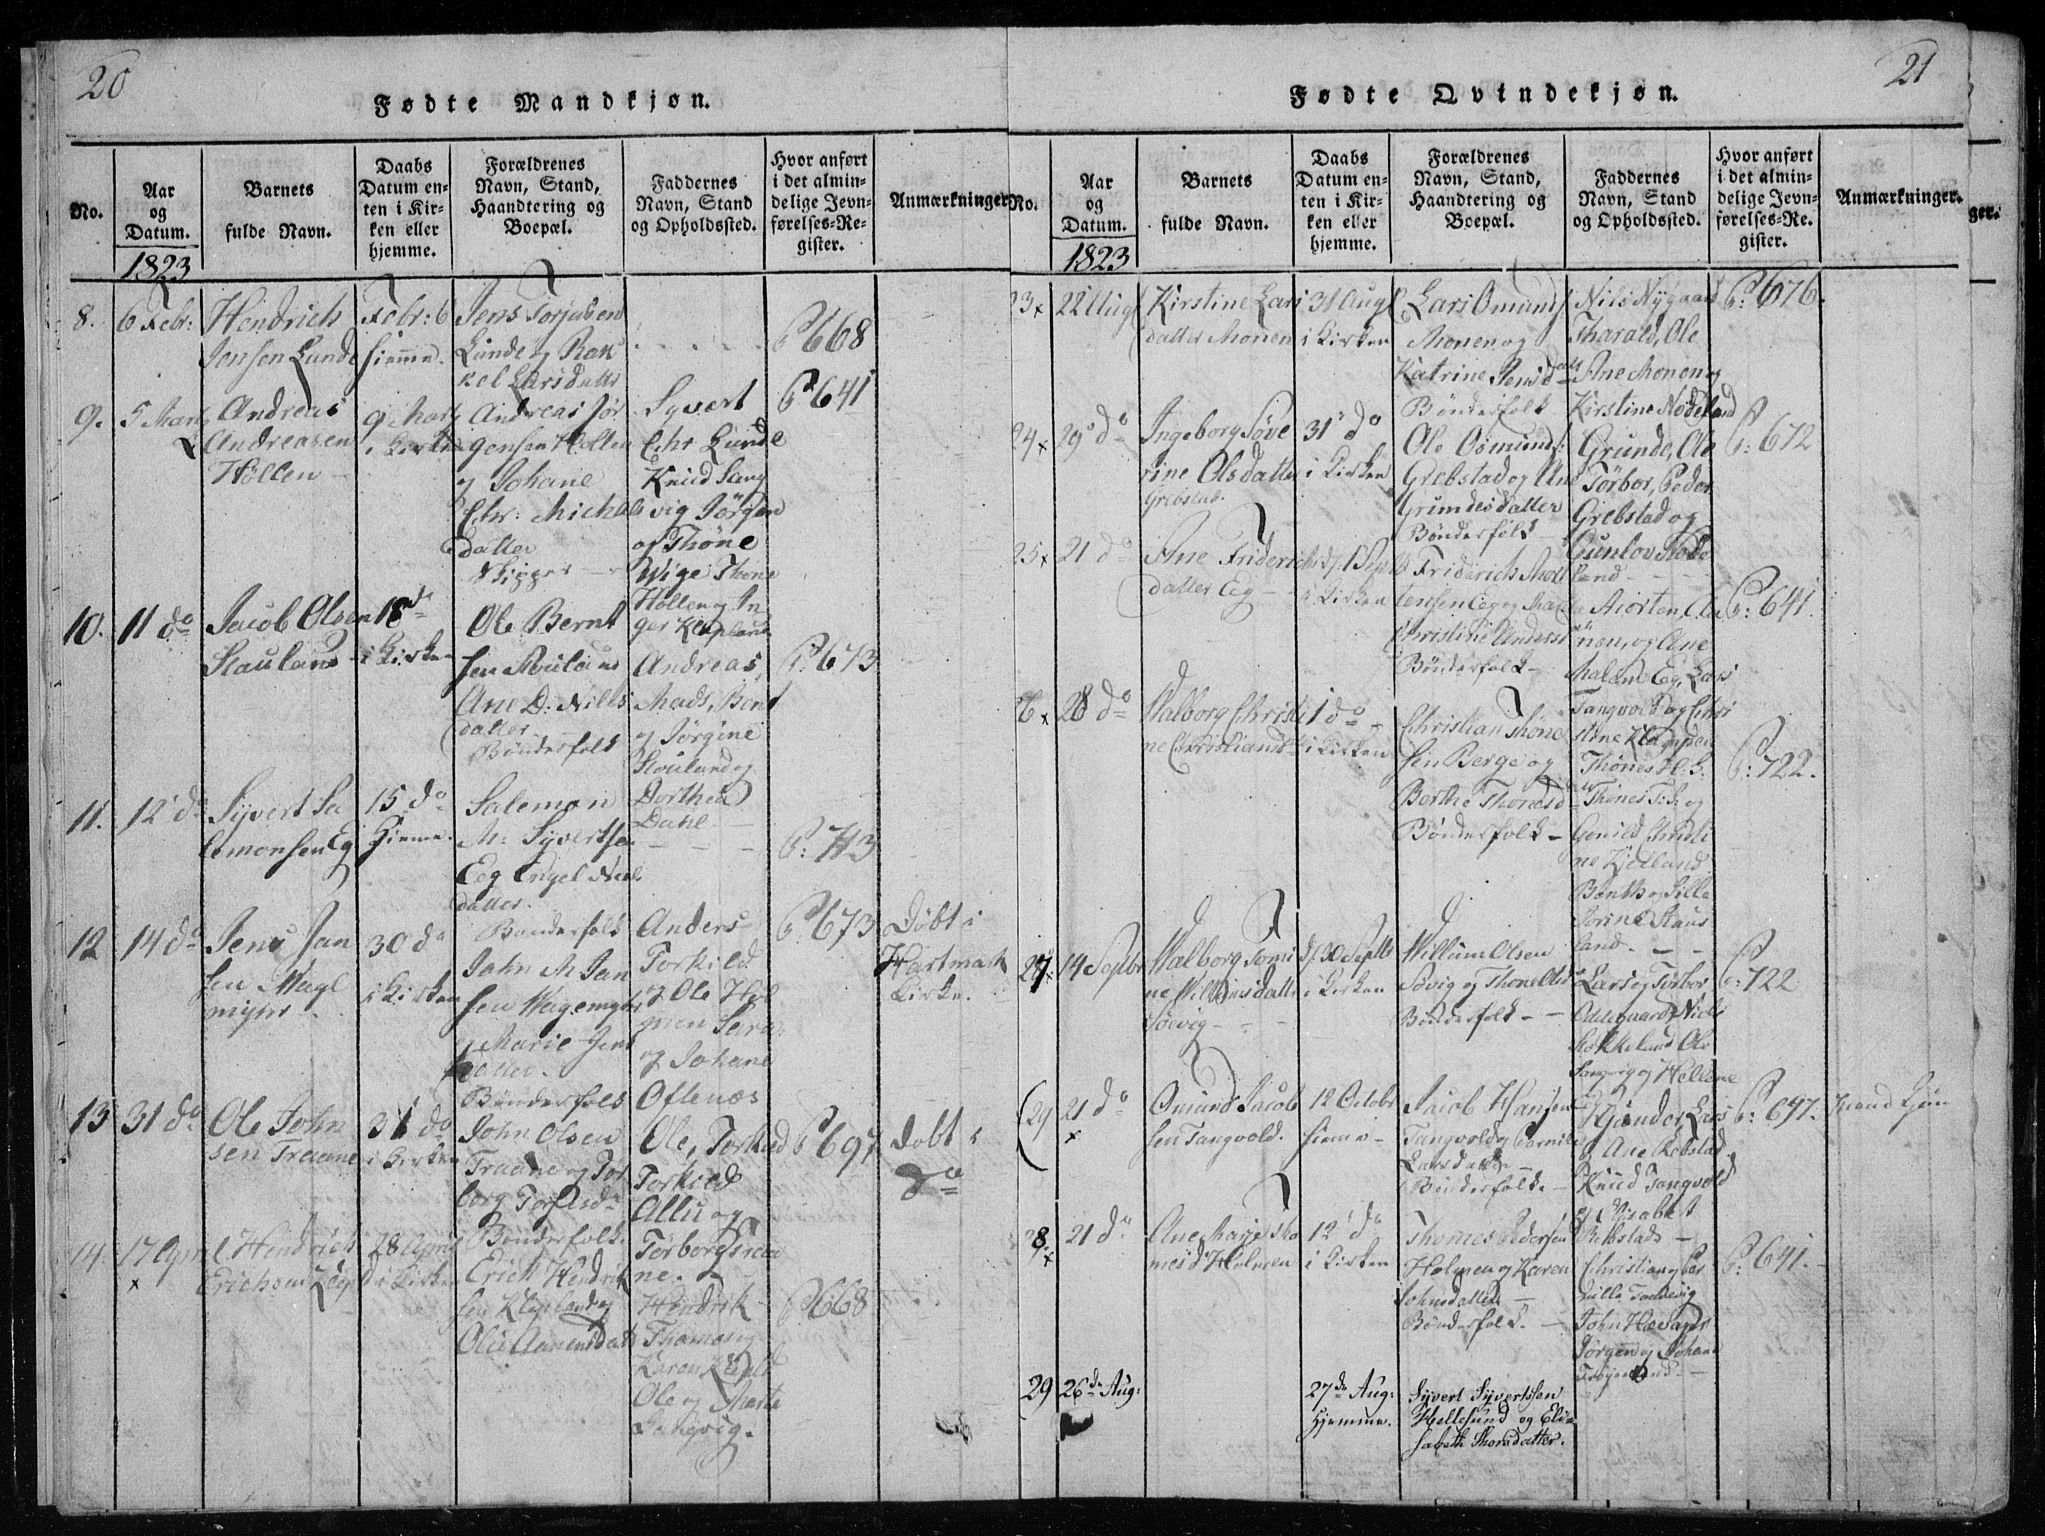 20
Fødte Mandkjøn.
No.
Aar
og
Datum.
1823
Barnets
fulde Navn.
Daabs
Datum en-
ten i Kir-
ken eller
hjemme.
Forældrenes
Navn, Stand,
Haandtering og
Boepæl.
Faddernes
Navn, Stand
og Opholdssted.
Hvor anført
i det almin-
delige Jevn-
førelses-Re-
gister.
Anmærkninger
8.
6 Febr:
Hendrich
Jensen Lunde
Febr: 6
hieme.
Jens Torjusen
Lunde og Rak
kel Larsdatter
P 668
9.
5 Marts
Andreas
Andreasen
Hollen
9 Marts
i Kirken
Andreas Jør
gensen Hollen
og Johane
Chr: Michels
datter
Skipper
Syvert
Chr Lunde
Knud Lang
vig Jørgen
og Thone
Wige Thone
Hollen og In
ger Klepland
P 641
10.
11 do
Jacob Olsen
Stauland
18 do
i Kirken
Ole Bernt
sen Stauland
Ane D: Nills
datter
Bønderfolk
Andreas,
Mads, Bent
og Jørgine
Stouland og
Dorthea
Dahl
P: 673
11.
12 do
Syvert Sa
lemonsen Eg
15 do
Hieme.
Salemon
M: Syvertsen
Eeg Engel Niels
datter.
Bønderfolk
P: 713
12
14 do
Jens Jan
sen Wægl
myhr
30 do
i Kirken
Jahn M Jan
sen Wægemyhr
og Marie Jens
datter.
Bønderfolk
Anders
Torkild
og Ole Hol
men Sara
og Johane
Oftenæs
P 673
Døbt i
Hartmark
Kirke.
13
31 do
Ole John
sen Traane
31 do
i Kirken
John Olsen
Traane og Tor
borg Torfisdr
Bønderfolk
Ole, Torkild
Torkild
Ollu og
Torborg Traa
ne.
P 697
Døbt i
do
14.
17 April
Hendrich
Erichsen Klepl
28 April
i Kirken
Erich Hendrik
sen Klepland og
Olu Aanensdatr
Hendrik
Thomas og
Karen Klepld
Ole og Marte
Langvig.
P 668
21
Fødte Qvindekjøn.
No.
Aar
og
Datum.
1823
Barnets
fulde Navn.
Daabs
Datum en-
ten i Kir-
ken eller
hjemme.
Forældrenes
Navn, Stand,
Haandtering og
Boepæl.
Faddernes
Navn, Stand
og Opholdssted.
Hvor anført
i det almin-
delige Jevn-
førelses-Re-
gister.
Anmærkninger.
23
22 Augs
Kirstine Lars
datter Monen
31 Augs
i Kirken
Lars Omunds
Monen og
Katrine Jensdatt
Bønderfolk
Nils Nygaard
Tharald, Ole
Ane Monen og
Kirstine Nodeland
P: 676.
24
29 do
Ingeborg Søve
rine Olsdatter
Grebstad.
31 do
i Kirken
Ole Osmunds:
Grebstad og An
Grundesdatter
Bønderfolk
Grunde, Ole
Torbor, Peder
Grebstad og
Gunlov Node
land
P: 672
25
21 do
Ane Friderichs
datter Eg
d. 1 Septb
i Kirken
Friderich Mort
tensen Eeg og
Christine Anders
Bønderfolk
Morten,
og Ane
Malene Eg, Lars
Tangvold og Chri
stine
P: 641.
28 do
Walborg Christi
ne Christiansd
1 do
i Kirken
Christian Thone
sen Berge og
Berthe Thonesd
Bønderfolk
Thones H. B:
Thones T: h og
Gonild Christi
ne Kjelland
Bent og Silla
Torine Staus
land.
P: 722.
27
14 Septbr
Walborg Tomi
ne Willumsdatter
Solvig
d. 30 Septb
i Kirken
Willum Olsen
Solvig og Thone Olsd
Bønderfolk
Lars og Torbor
Odegaard, Niels
Stokkeland Ole
Langvig og Hellene
P: 722
29
21 do
Omund Jacob
sen Tangvold.
12 Octobr
hieme
Jacob Hansen
Tangvold og Pernille
Larsdatter
Bønderfolk.
Gjønder, Lars
og Ane Rebstad
Knud Tangvold
og Elisabet
Rebstad
P: 697.
Mand Kjøn
28
21 do
Ane Marje Tho
mesd Holmen
12 do
i Kirken
Thomes Pedersen
Holmen og Karen
Johnsdatter
Bønderfolk.
Christian, Per
nille Tordevig
John Havaas
Jørgen og Johane
P: 641.
29
26de Aug:
27de Aug:
Hjemme.
Syvert Syvertssen
Hellesund og Eli=
sabeth Thorsdatter.
ger.